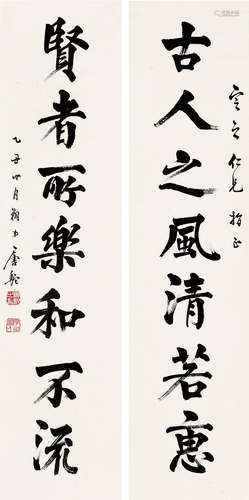 定之仁兄指正
古人之風清若惠
賢者所樂和不流
乙丑四月唐駝